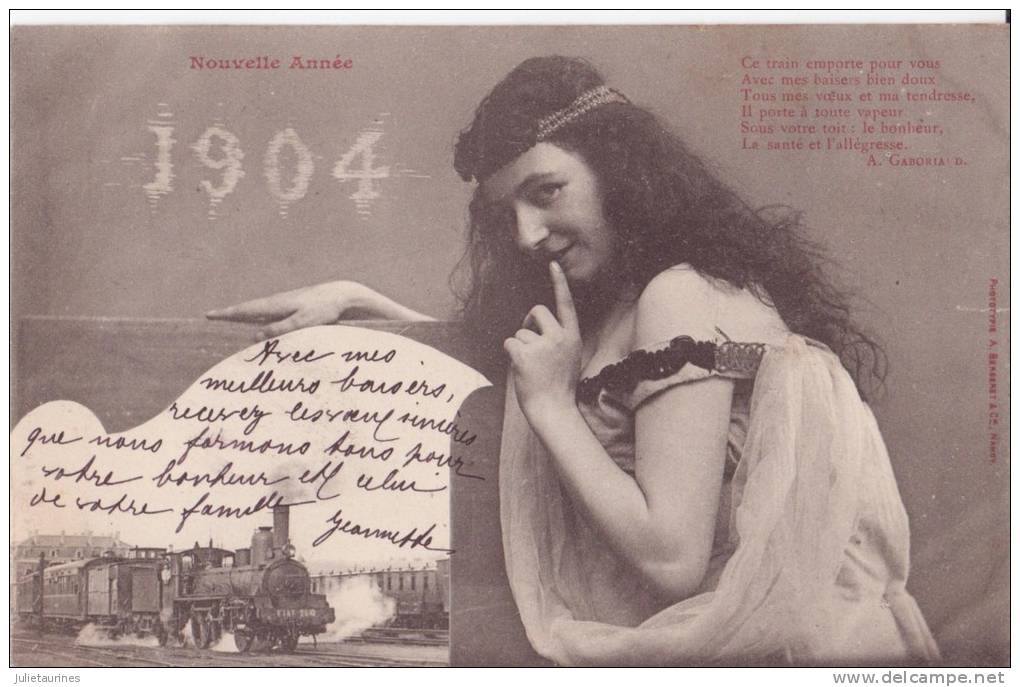 Nouvelle Année
1904
Ce train emporte pour vous
Avec mes baisers bien doux
Tous mes vœux et ma tendresse,
Il porte à toute vapeur
Sous votre toit : le bonheur,
La santé et l'allégresse.
A. GABORIAUD.
Avec mes
meilleurs baisers,
recevez les vœux sincères
que nous formons tous pour
votre bonheur et celui
de votre famille
Jeannette
ETAT
PHOTOTYPIE A. BERGERET & Cie, NANCY
julietaurines
www.delcampe.net